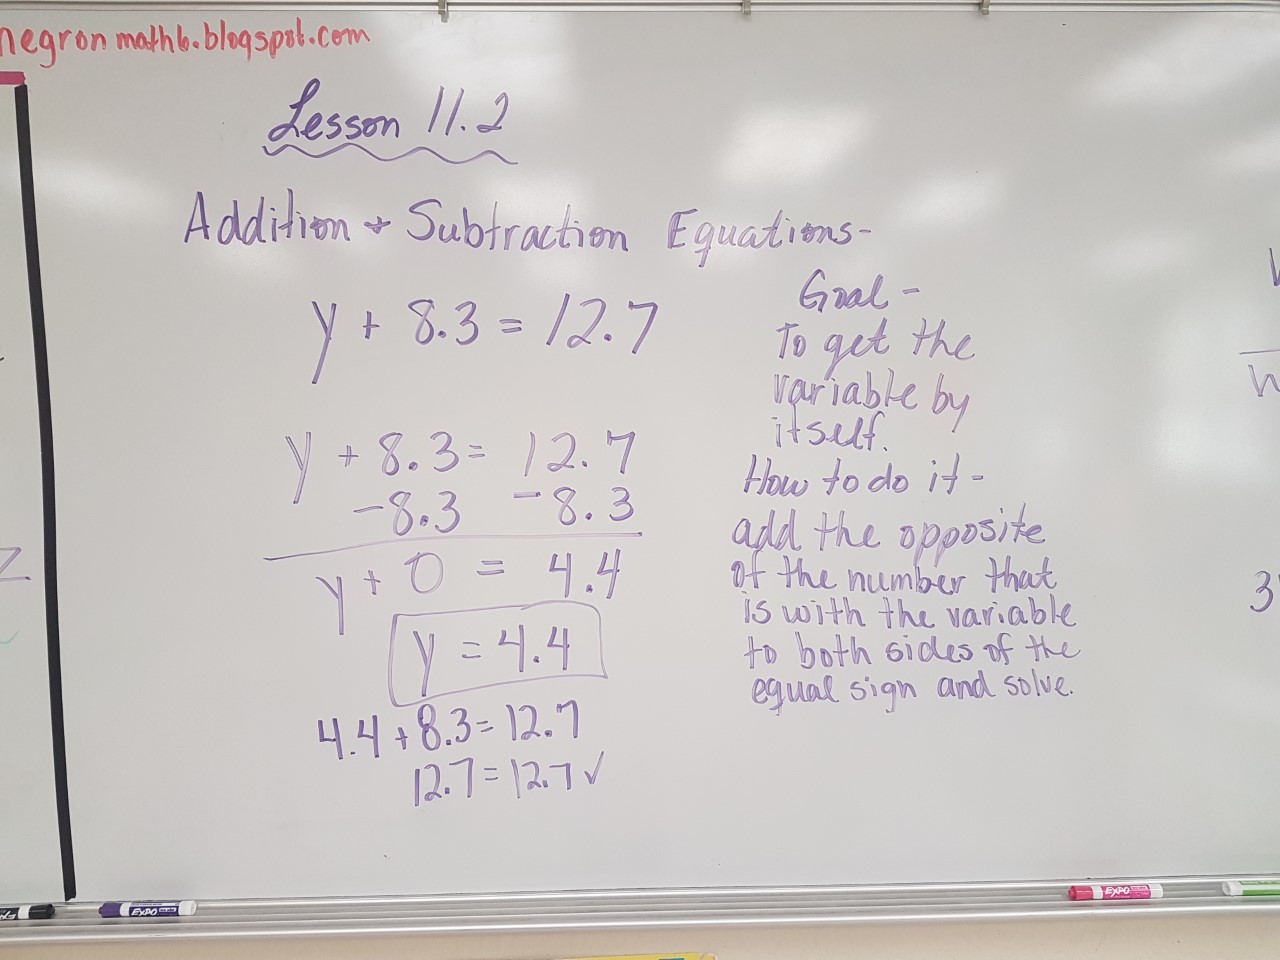 negronmath6.blogspot.com
Lesson 11.2
Addition + Subtraction Equations-
y + 8.3 = 12.7
y + 8.3 = 12.7
-8.3 -8.3
y + 0 = 4.4
y = 4.4
4.4 + 8.3 = 12.7
12.7 = 12.7 ✓
Goal -
To get the
variable by
itself.
How to do it -
add the opposite
of the number that
is with the variable
to both sides of the
equal sign and solve.
3
EXPO
EXPO